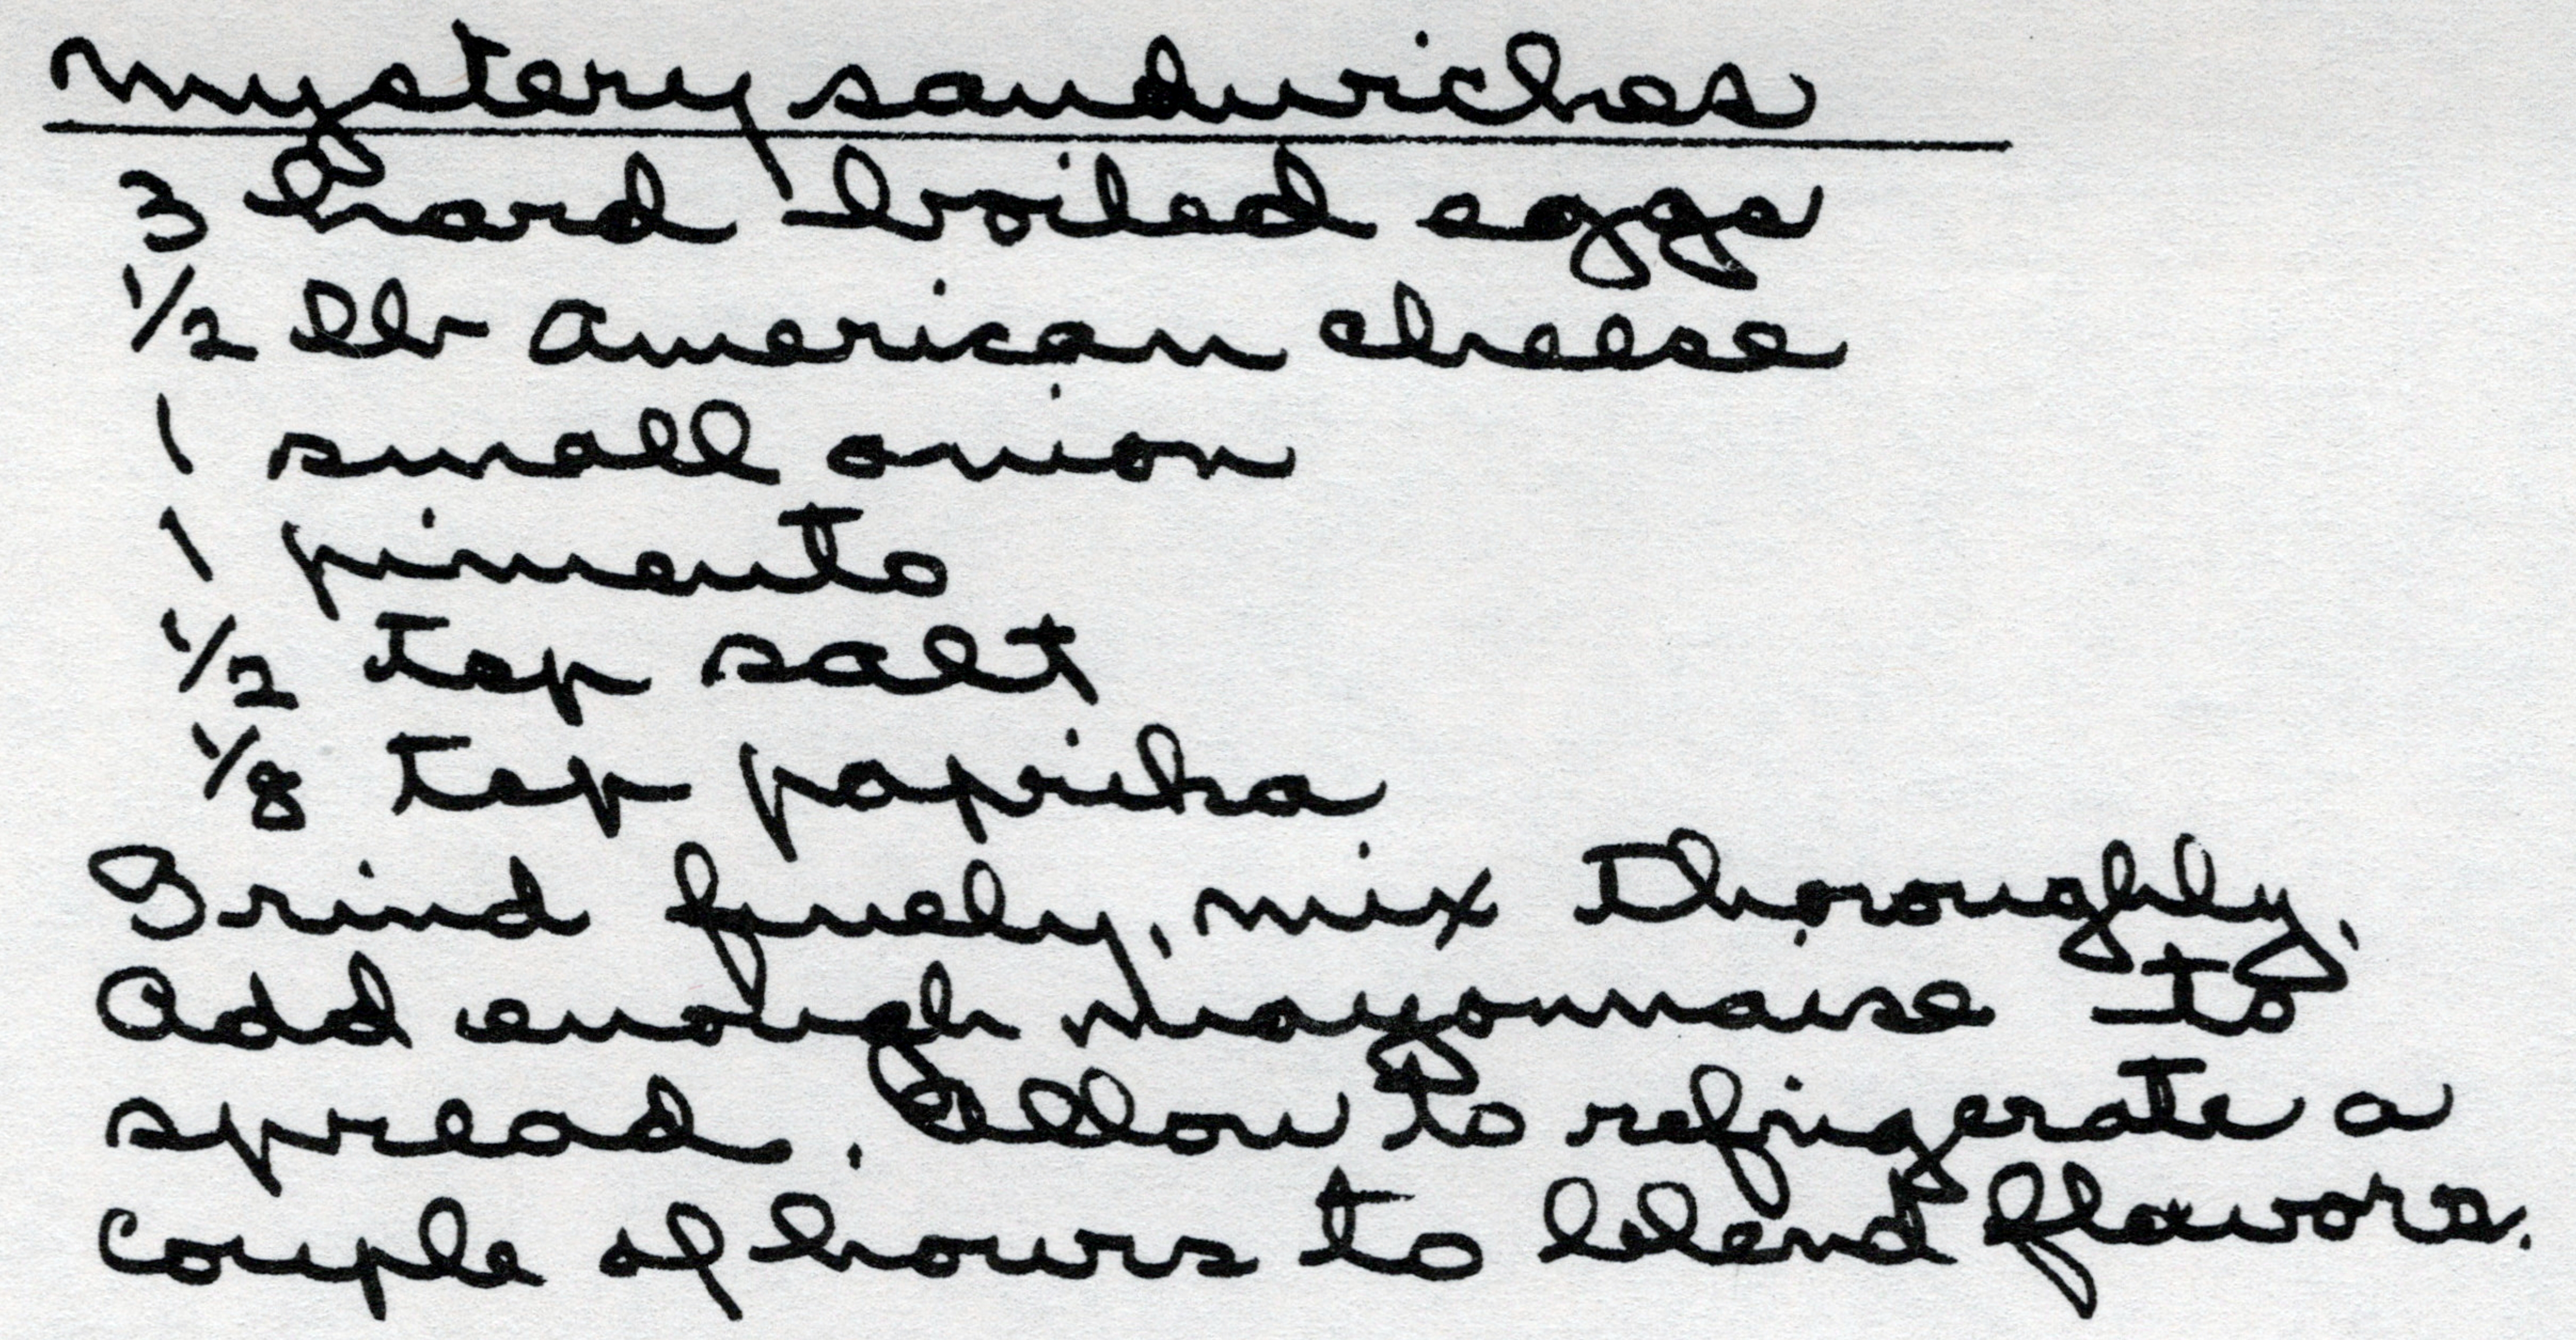 Mystery sandwiches
3 hard boiled eggs
1/2 lb American cheese
1 small onion
1 pimento
1/2 tsp salt
1/8 tsp paprika
Grind finely, mix thoroughly,
Add enough mayonnaise to
spread. Allow to refrigerate a
couple of hours to blend flavors.